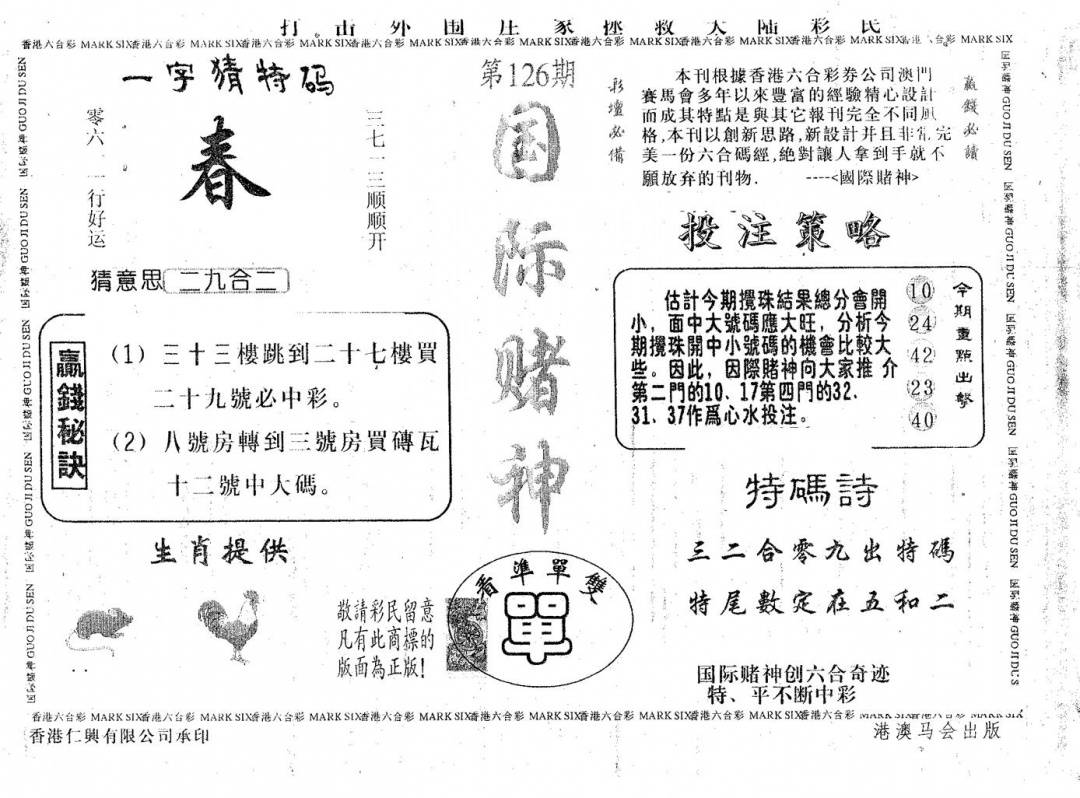 打击外围庄家拯救大陆彩民
香港六合彩 MARK SIX香港六合彩 MARK SIX香港六合彩 MARK SIX香港六合彩 MARK SIX香港六合彩 MARK SIX香港六合彩 MARK SIX香港六合彩 MARK SIX香港六合彩 MARK SIX香港六合彩 MARK SIX
一字猜特码
零六一一行好运
春
三七一三顺顺开
猜意思 二九合二
贏錢秘訣
(1) 三十三樓跳到二十七樓買
二十九號必中彩。
(2) 八號房轉到三號房買磚瓦
十二號中大碼。
生肖提供
敬請彩民留意
凡有此商標的
版面為正版!
第126期
国际赌神
看準單雙
單
彩壇必備
本刊根據香港六合彩券公司澳門
賽馬會多年以來豐富的經驗精心設計
而成其特點是與其它報刊完全不同風
格,本刊以創新思路,新設計并且非常完
美一份六合碼經,絶對讓人拿到手就不
願放弃的刊物. ----<國際賭神>
贏錢必讀
投注策略
估計今期攪珠結果總分會開
小，面中大號碼應大旺，分析今
期攪珠開中小號碼的機會比較大
些。因此，因際賭神向大家推介
第二門的10、17第四門的32、
31、37作爲心水投注。
10
24
42
23
40
今期重點出擊
特碼詩
三二合零九出特碼
特尾數定在五和二
国际赌神创六合奇迹
特、平不断中彩
国际赌神 GUO JI DU SEN 国际赌神 GUO JI DU SEN 国际赌神 GUO JI DU SEN 国际赌神 GUO JI DU SEN 国际赌神 GUO JI DU SEN
国际赌神 GUO JI DU SEN 国际赌神 GUO JI DU SEN 国际赌神 GUO JI DU SEN 国际赌神 GUO JI DU SEN 国际赌神 GUO JI DU S
香港六合彩 MARK SIX香港六合彩 MARK SIX香港六合彩 MARK SIX香港六合彩 MARK SIX香港六合彩 MARK SIX香港六合彩 MARK SIX香港六合彩 MARK SIX香港六合彩 MARK SIX香港六合彩 MARK SIX
香港仁興有限公司承印
港澳马会出版